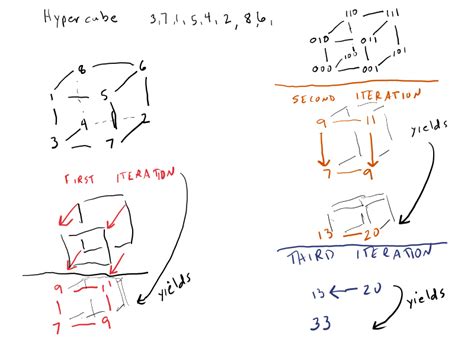 Hypercube 3,7,1,5,4,2,8,6,
8 6
1 5
4 2
3 7
FIRST ITERATION
9 11
7 9
yields
110 111
010 011
100 101
000 001
SECOND ITERATION
9 11
7 9
yields
13 20
THIRD ITERATION
13 ← 20
yields
33